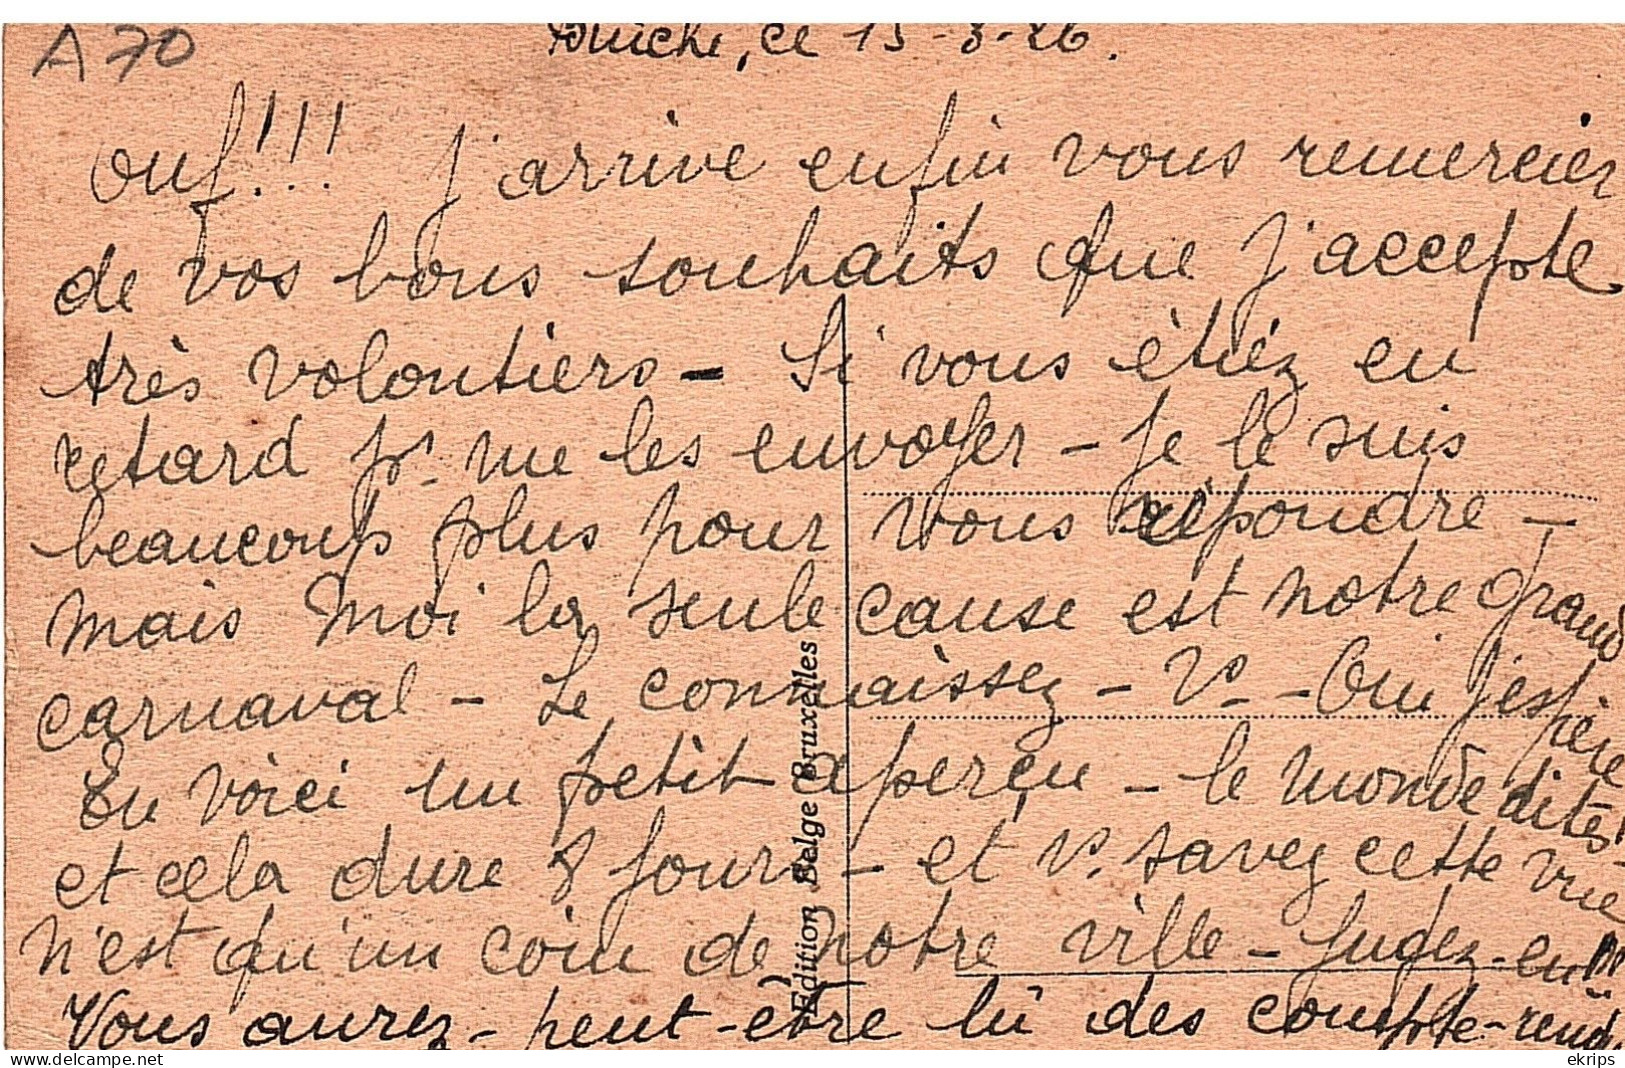 A70
Binche, ce 15-3-26.
Ouf!!! J'arrive enfin vous remercier
de vos bons souhaits que j'accepte
très volontiers - Si vous étiez en
retard pr me les envoyer - Je le suis
beaucoup plus pour vous répondre -
mais moi la seule cause est notre grand
carnaval - Le connaissez - Vs - Oui j'espère
En voici un petit aperçu - le monde dites!
et cela dure 8 jours - et Vs savez cette vue
n'est qu'un coin de notre ville - Jugez-en!!!
Vous aurez - peut-être lu des compte-rend
Edition Belge Bruxelles
ekrips